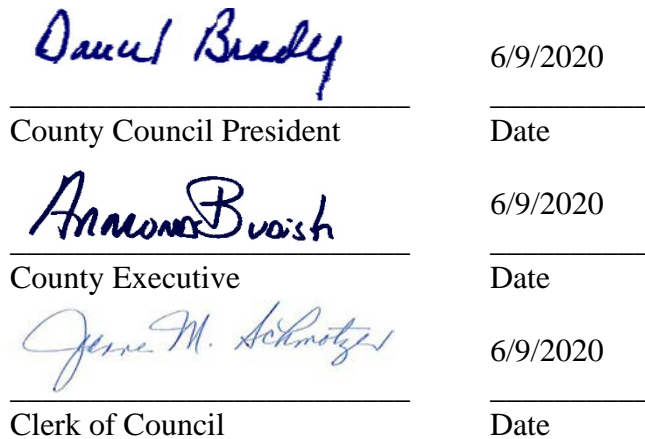 Daniel Brady 6/9/2020
County Council President Date
6/9/2020
County Executive Date
Jeanne M. Schmotzer 6/9/2020
Clerk of Council Date